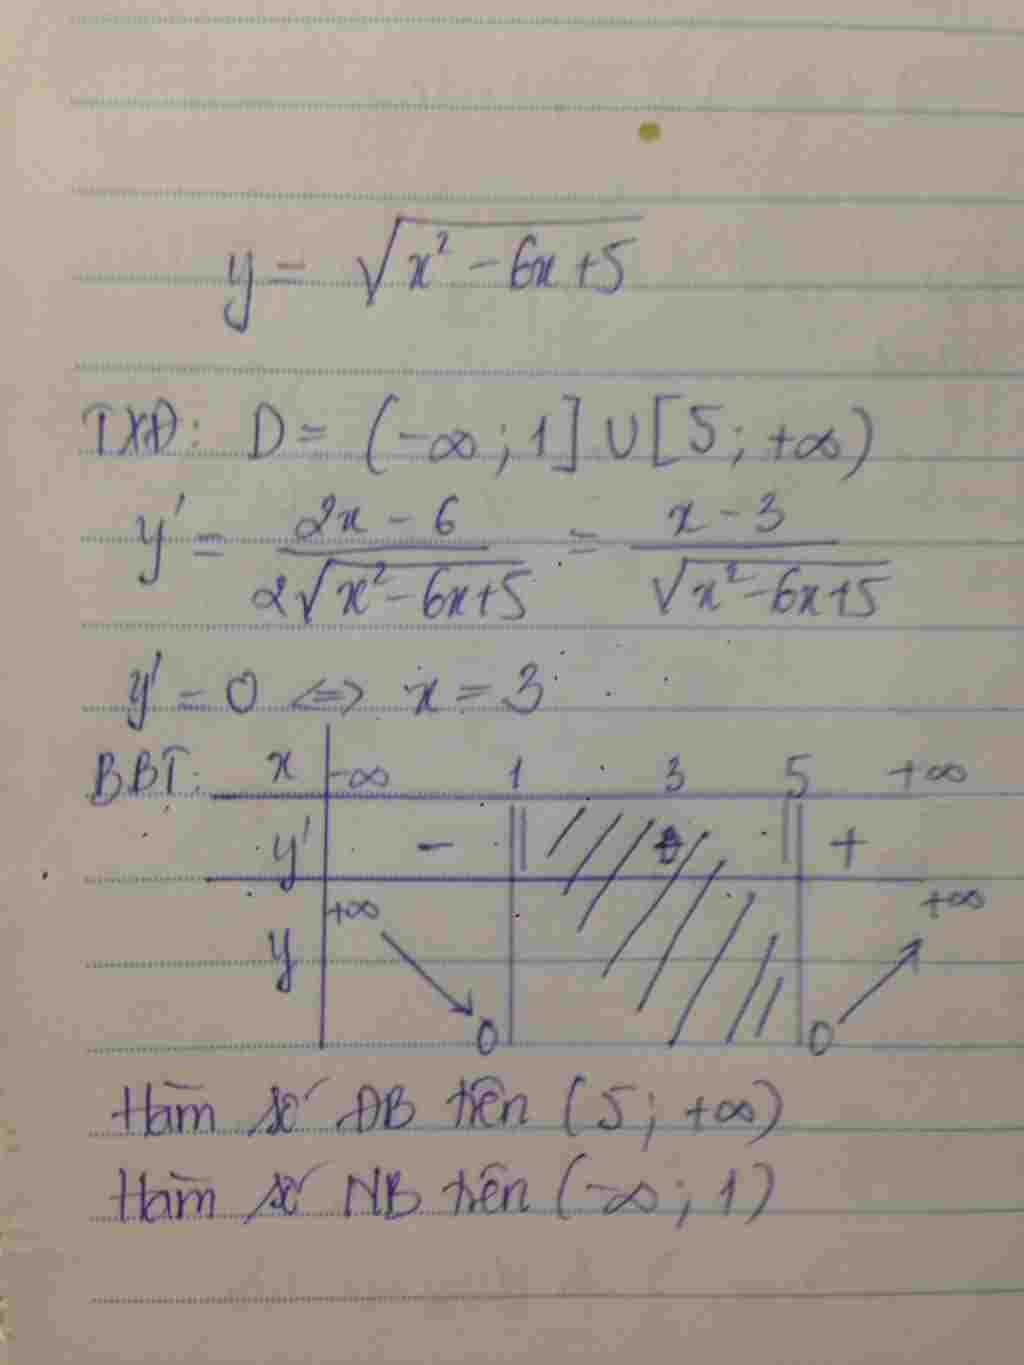 y = √(x² - 6x + 5)
TXĐ: D = (-∞ ; 1] ∪ [5 ; +∞)
y' = (2x - 6)/(2√(x² - 6x + 5)) = (x - 3)/(√(x² - 6x + 5))
y' = 0 <=> x = 3
BBT: x | -∞ 1 3 5 +∞
y' | - || 0 || +
y | +∞ ↘ 0 | | 0 ↗ +∞
Hàm số ĐB trên (5 ; +∞)
Hàm số NB trên (-∞ ; 1)